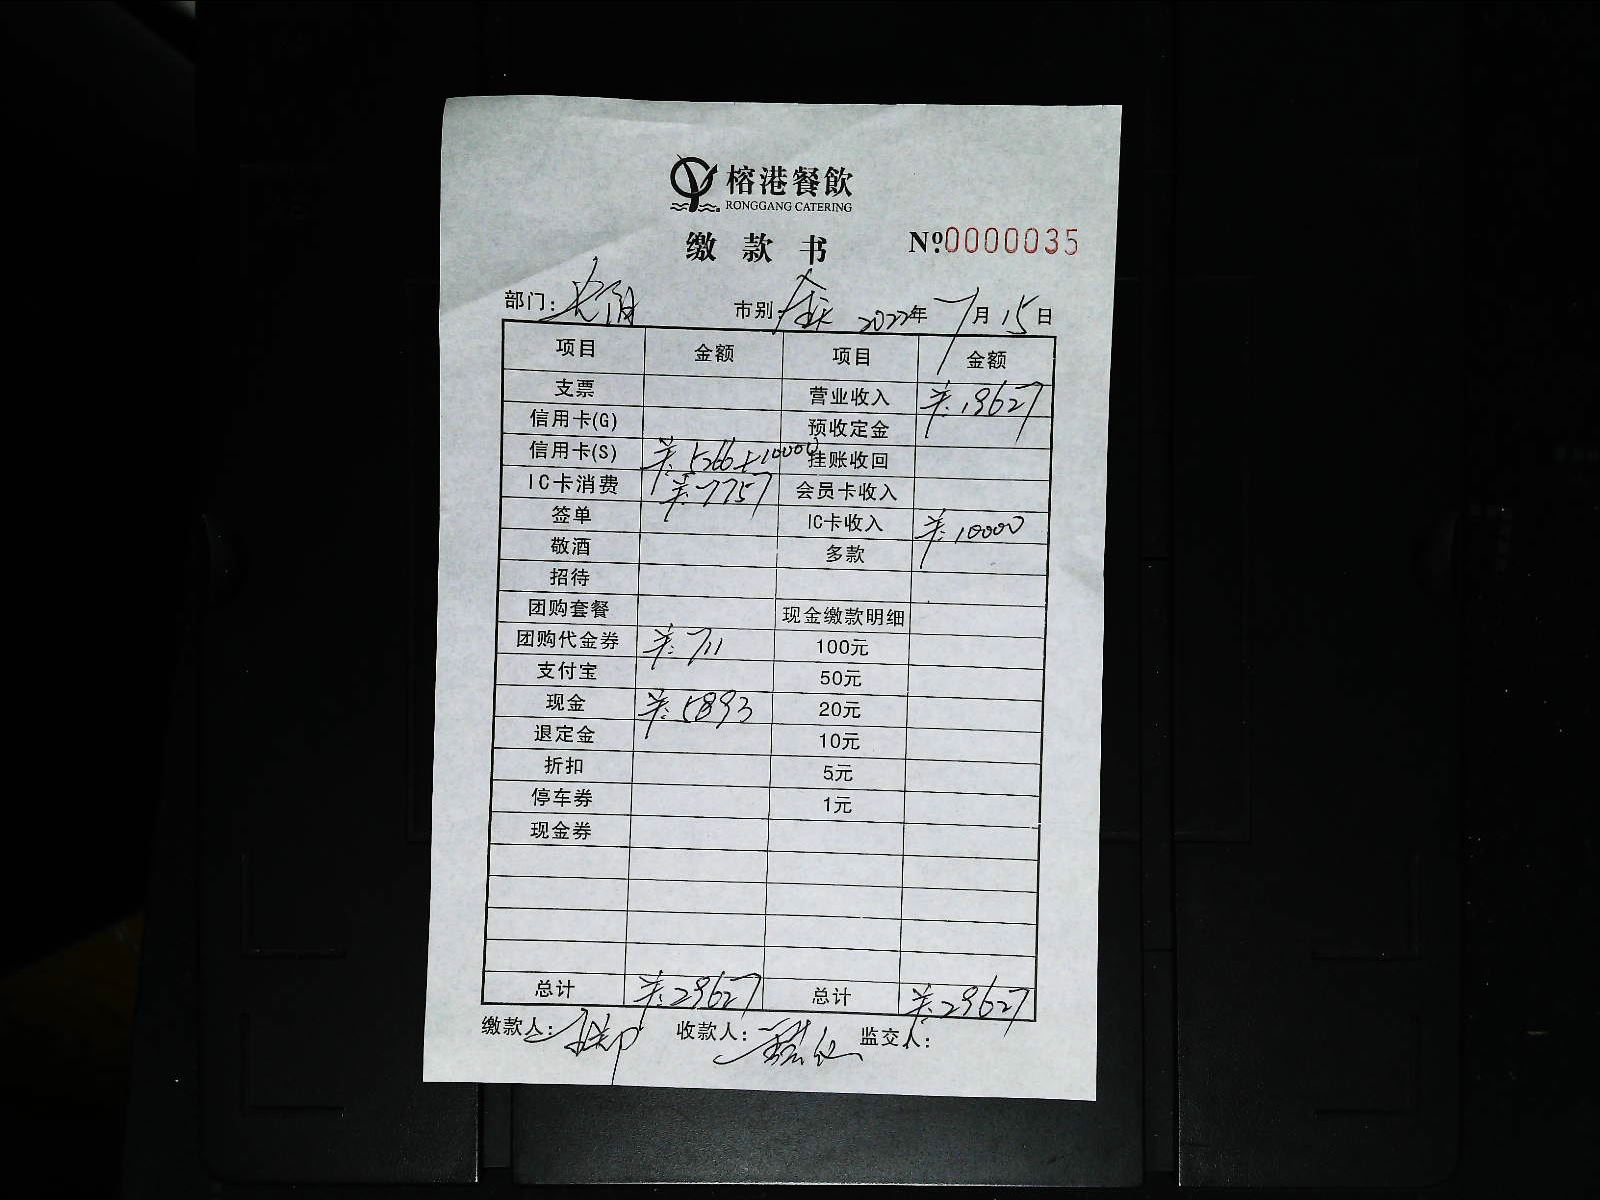 榕港餐飲
RONGGANG CATERING
缴款书 №0000035
部门: 市别: 全天 2022年7月15日
项目 金额 项目 金额
支票 营业收入 ¥:19627
信用卡(G) 预收定金
信用卡(S) ¥:5266+10000 挂账收回
IC卡消费 ¥:7757 会员卡收入
签单 IC卡收入 ¥:10000
敬酒 多款
招待
团购套餐 现金缴款明细
团购代金券 ¥:711 100元
支付宝 50元
现金 ¥:5893 20元
退定金 10元
折扣 5元
停车券 1元
现金券
总计 ¥:29627 总计 ¥:29627
缴款人: 收款人: 监交人: